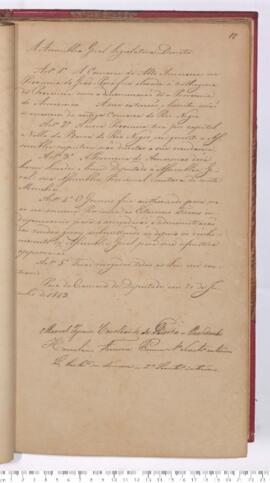 A Assemblea Geral Legislativa Decreta
Art. 1º A Comarca do Alto Amazonas na
Provincia do Grão Pará fica elevada á cathegoria
de Provincia, com a denominação de = Provincia
do Amazonas. A sua extensão e limites serão
os mesmos da antiga Comarca do Rio Negro
Art. 2º A nova Provincia terá por capital
a Villa da Barra do Rio Negro, em quanto a As-
semblea respectiva não decretar a sua mudança.
Art. 3º A Provincia do Amazonas dará
hum Senador, e hum Deputado á Assemblea Ge-
ral: sua Assemblea Provincial constará de vinte
Membros.
Art. 4º O Governo fica authorisado para
na mesma Provincia as Estações fiscaes in-
dispensaveis para a arrecadação e administração
das rendas geraes, submettendo-as depois ao conhe-
cimento da Assemblea Geral para sua definitiva
approvação.
Art. 5º Ficão revogadas todas as Leis em con-
trario.
Paço da Camara dos Deputados em de Ju-
nho de 1843.
Manoel Ignacio Cavalcanti de Presidente
Ferreira Penna 1º Secretario
2º Secretario